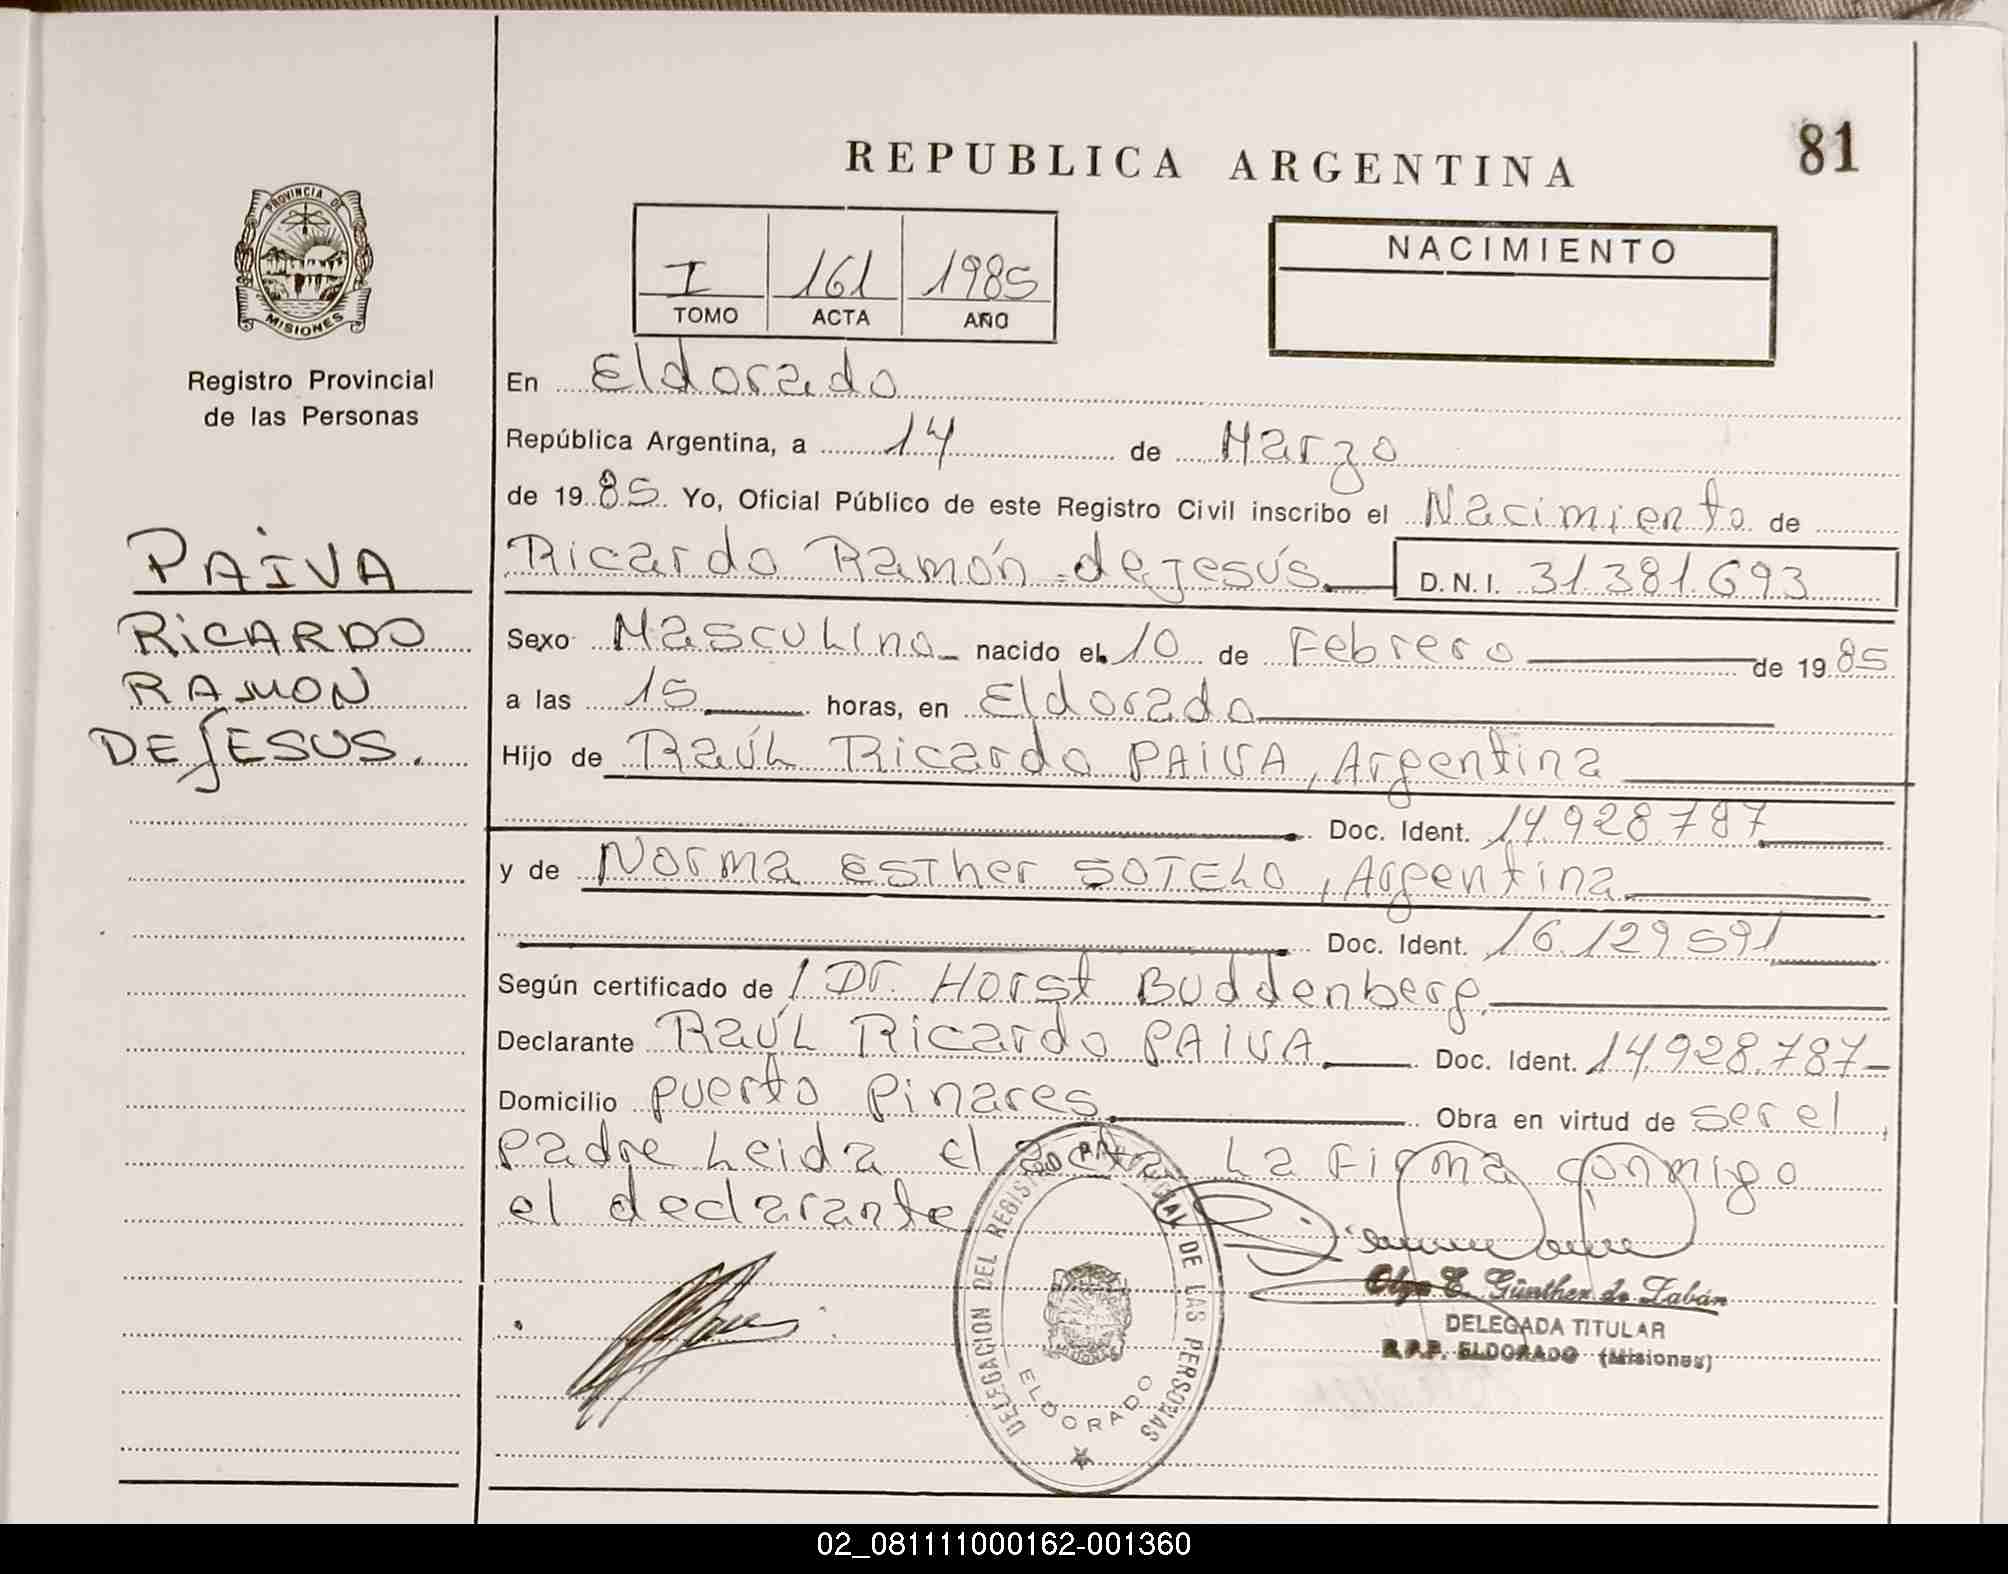 81
REPUBLICA ARGENTINA
PROVINCIA DE
MISIONES
Registro Provincial
de las Personas
I 161 1985
TOMO ACTA AÑO
NACIMIENTO
PAIVA
RICARDO
RAMON
DE JESUS.
En Eldorado
República Argentina, a 14 de Marzo
de 1985 Yo, Oficial Público de este Registro Civil inscribo el Nacimiento de
Ricardo Ramón de Jesús D.N.I. 31.381.693
Sexo Masculino nacido el 10 de Febrero de 1985
a las 15 horas, en Eldorado
Hijo de Raúl Ricardo PAIVA, Argentina
Doc. Ident. 14.928.787
y de Norma Esther SOTELO, Argentina
Doc. Ident. 16.129.591
Según certificado de Dr. Horst Buddenberg
Declarante Raúl Ricardo PAIVA Doc. Ident. 14.928.787
Domicilio puerto pinares Obra en virtud de ser el
padre Leida el acta La Firma conmigo
el declarante
DELEGACION DEL REGISTRO PROVINCIAL DE LAS PERSONAS
ELDORADO
Olga E. Günther de Labán
DELEGADA TITULAR
R.P.P. ELDORADO (Misiones)
02_081111000162-001360